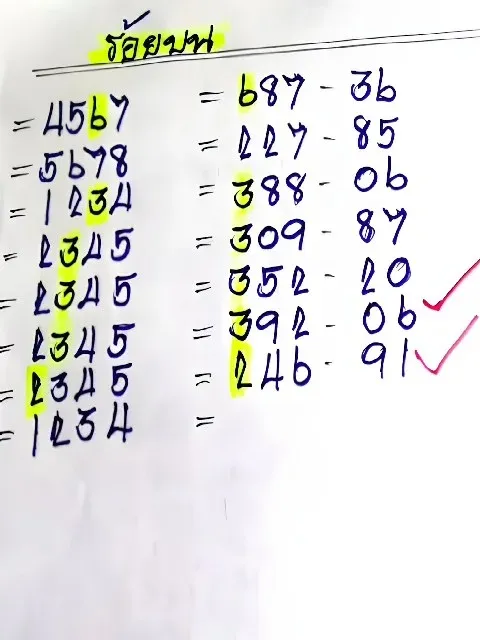 ร้อยบน
= 4567 = 687 - 36
= 5678 = 227 - 85
= 1234 = 388 - 06
= 2345 = 309 - 87
= 2345 = 352 - 20
= 2345 = 392 - 06
= 2345 = 246 - 91
= 1234 =